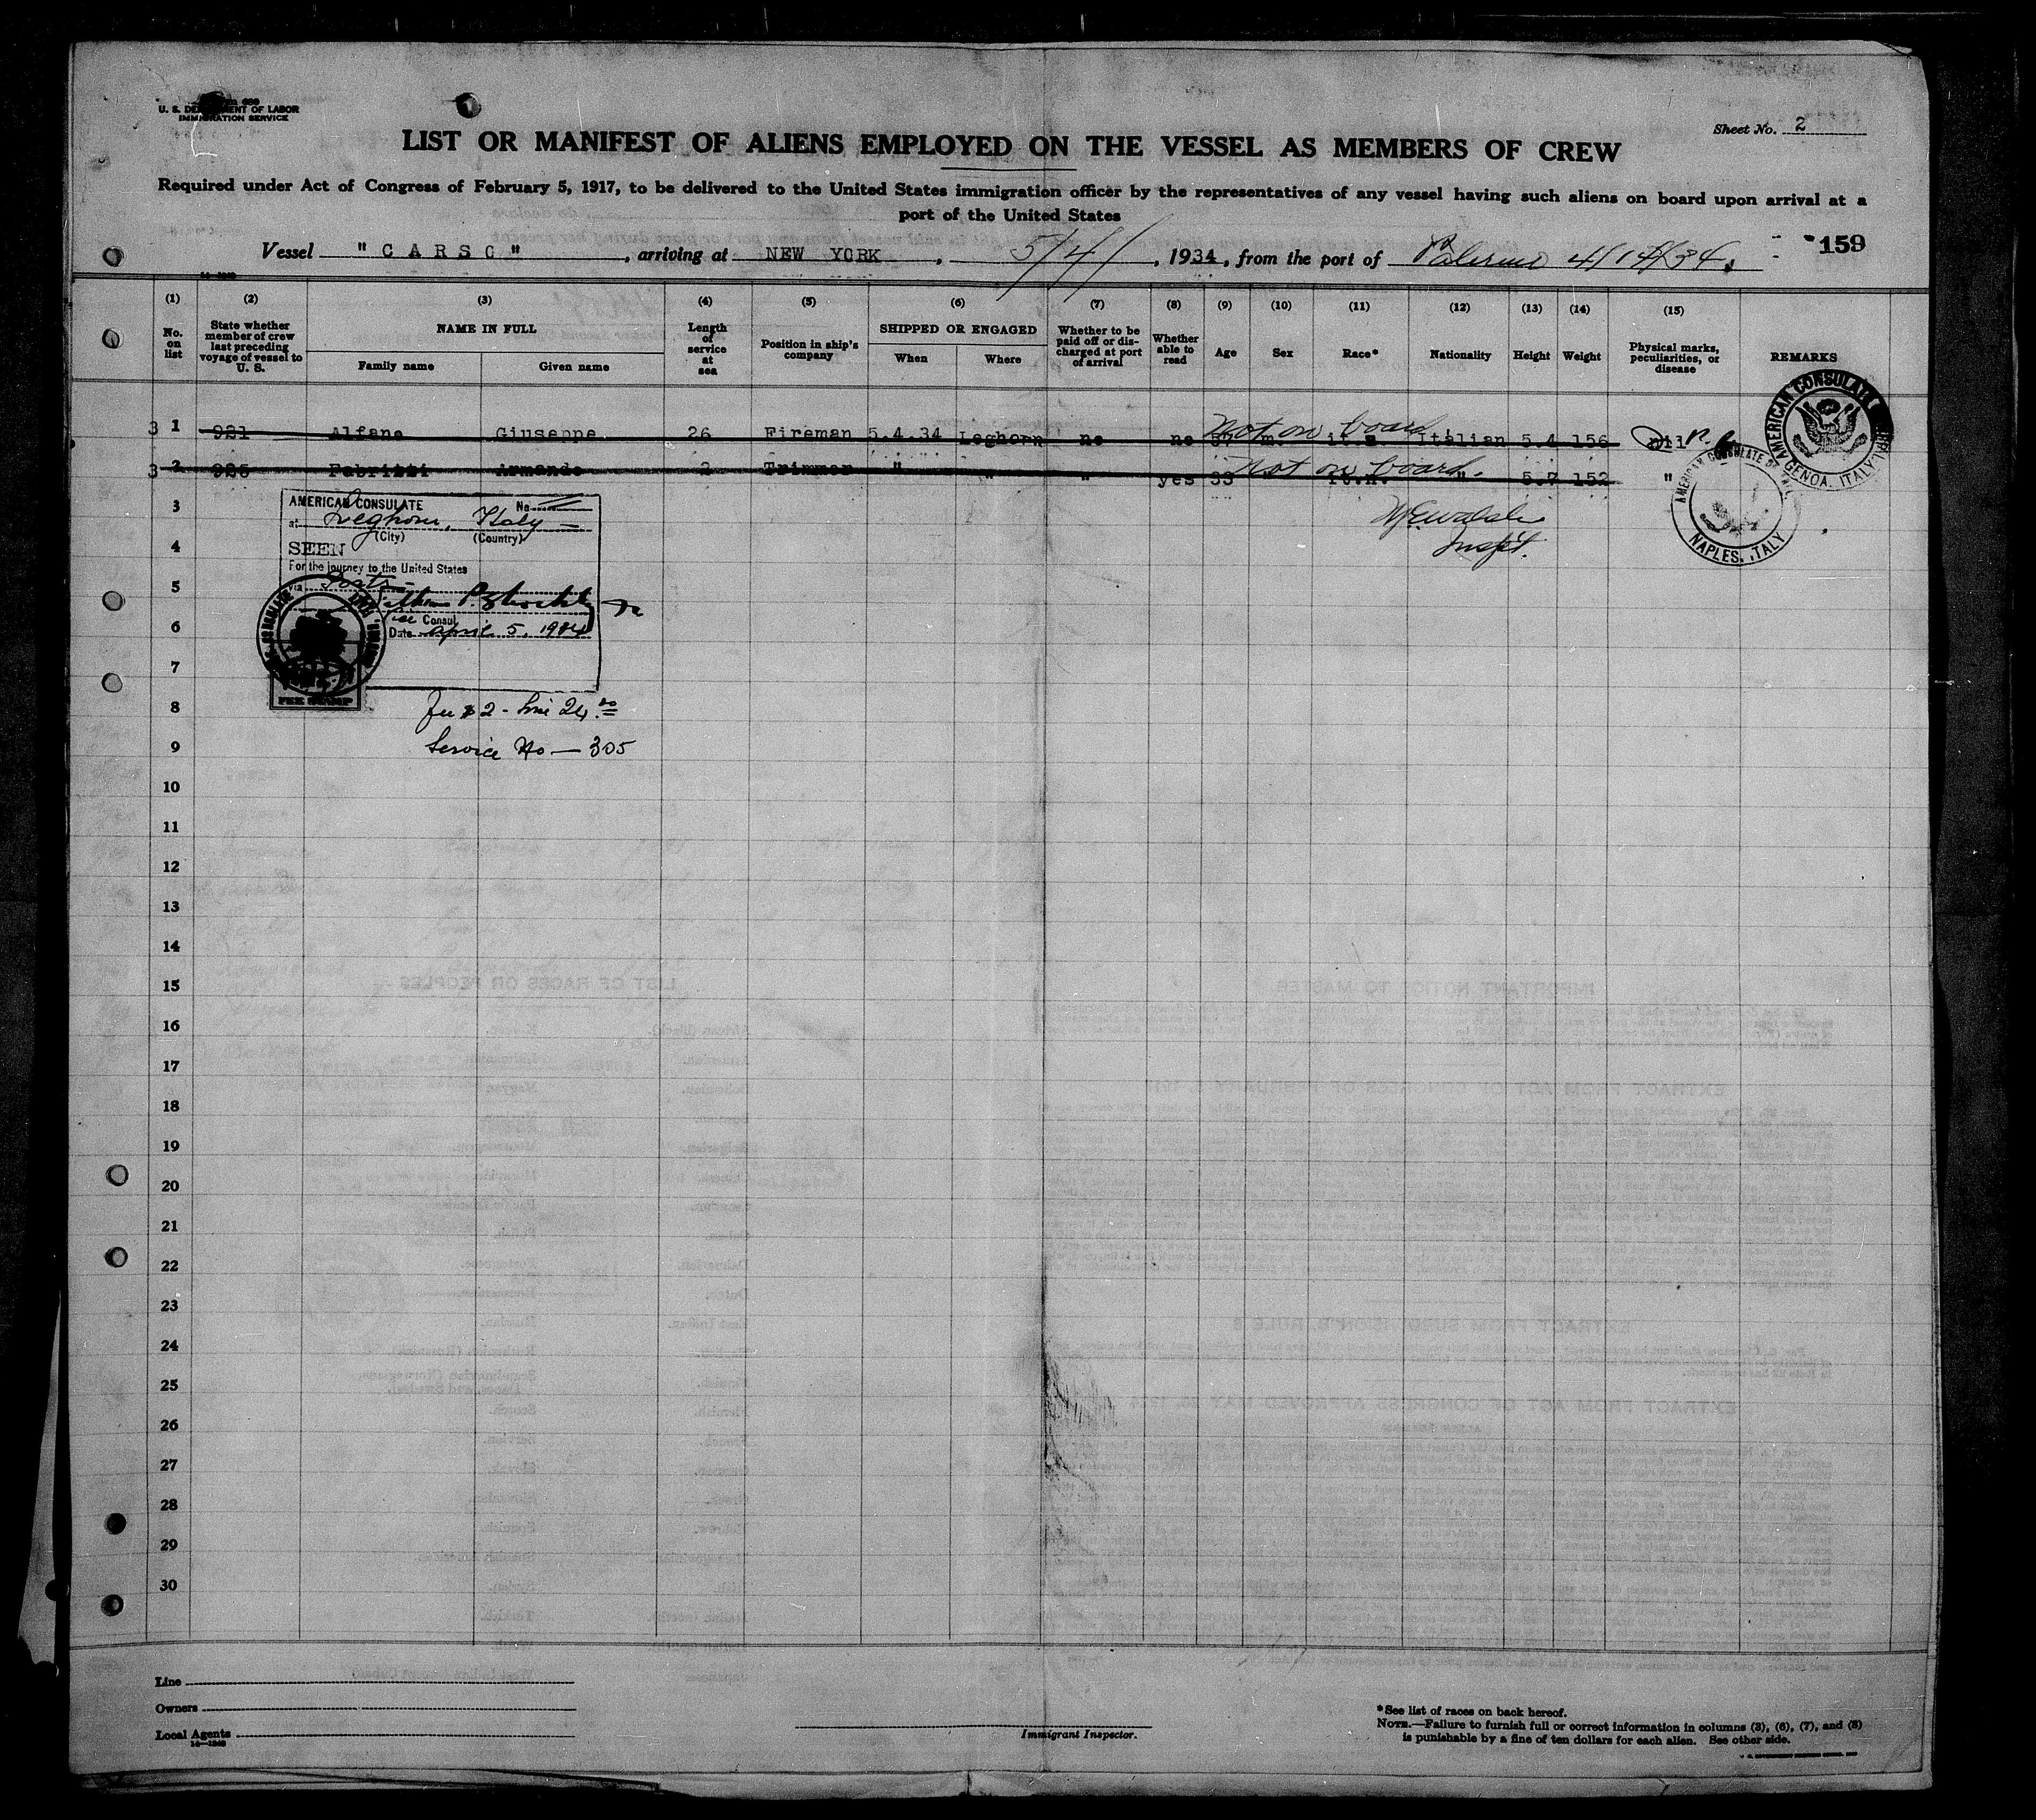 U. S. DEPARTMENT OF LABOR
IMMIGRATION SERVICE
Sheet No. 2
LIST OR MANIFEST OF ALIENS EMPLOYED ON THE VESSEL AS MEMBERS OF CREW
Required under Act of Congress of February 5, 1917, to be delivered to the United States immigration officer by the representatives of any vessel having such aliens on board upon arrival at a
port of the United States
Vessel "CARSO", arriving at NEW YORK, 5/4/, 1934, from the port of Palermo 4/14/34. 159
(1) (2) (3) (4) (5) (6) (7) (8) (9) (10) (11) (12) (13) (14) (15)
No. on list
State whether member of crew last preceding voyage of vessel to U. S.
NAME IN FULL
Family name Given name
Length of service at sea
Position in ship's company
SHIPPED OR ENGAGED
When Where
Whether to be paid off or discharged at port of arrival
Whether able to read
Age Sex Race* Nationality Height Weight
Physical marks, peculiarities, or disease
REMARKS
Not on board.
3 1 921 Alfano Giuseppe 26 Fireman 5.4.34 Leghorn no no 37 m. it.s. Italian 5.4 156 nil
Not on board.
3 2 925 Fabrizzi Armando 2 Trimmer " " " yes 33 " it.n. " 5.7 152 "
AMERICAN CONSULATE GENOA, ITALY
AMERICAN CONSULATE NAPLES, ITALY
Inspt.
AMERICAN CONSULATE No
at Leghorn, Italy
(City) (Country)
SEEN
For the journey to the United States
via Ports
Vice Consul
Date April 5, 1934
FEE STAMP
Fee $2 - Lire 24.00
Service No — 305
3
4
5
6
7
8
9
10
11
12
13
14
15
16
17
18
19
20
21
22
23
24
25
26
27
28
29
30
Line
Owners
Local Agents
14—1240
Immigrant Inspector.
*See list of races on back hereof.
NOTE.—Failure to furnish full or correct information in columns (3), (6), (7), and (8)
is punishable by a fine of ten dollars for each alien. See other side.